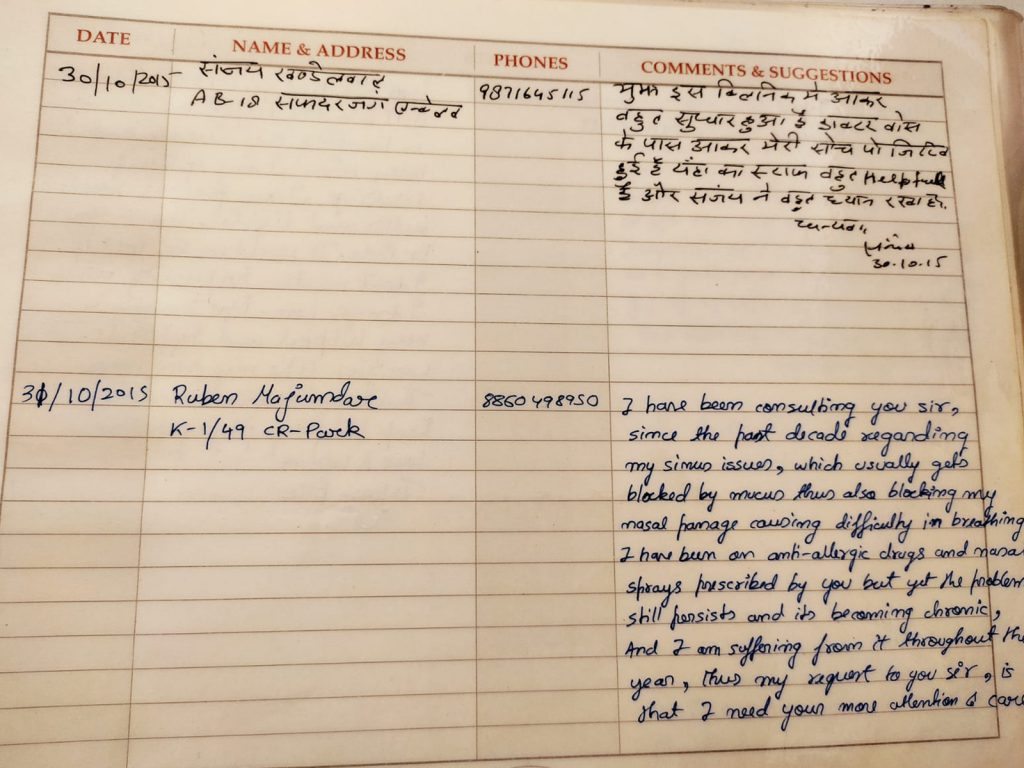 DATE NAME & ADDRESS PHONES COMMENTS & SUGGESTIONS
30/10/2015 संजय खण्डेलवाल 9871645115 मुझे इस क्लिनिक मे आकर
AB-18 सफदरजंग बहुत सुधार हुआ है डाक्टर बोस
के पास आकर मेरी सोच पोजिटिव
हुई है यहा का स्टाफ बहुत Helpfull
है और संजय ने बहुत ध्यान रखा है.
धन्यवाद
30.10.15
31/10/2015 Ruben Majumdar 8860498950 I have been consulting you sir,
K-1/49 CR-Park since the past decade regarding
my sinus issues, which usually gets
blocked by mucus thus also blocking my
nasal passage causing difficulty in breathing
I have been on anti-allergic drugs and nasa
sprays prescribed by you but yet the problem
still persists and its becoming chronic,
And I am suffering from it throughout the
year, thus my request to you sir, is
that I need your more attention & care